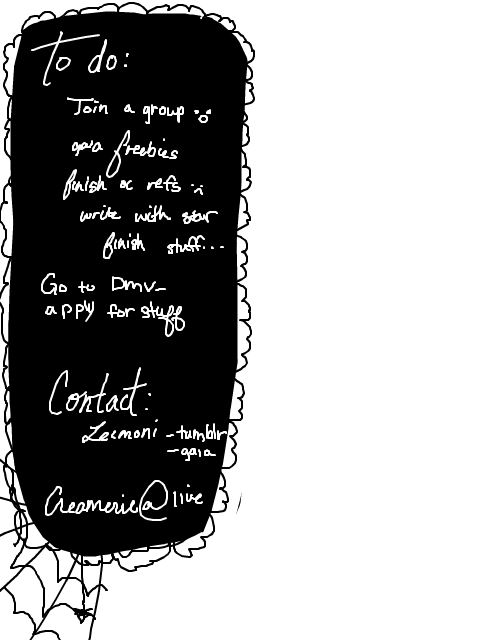 To do:
Join a group :o
gaia freebies
finish oc refs :c
write with star
finish stuff...
Go to Dmv_
apply for stuff
Contact:
Lecmoni -tumblr
-gaia
Creameric@live